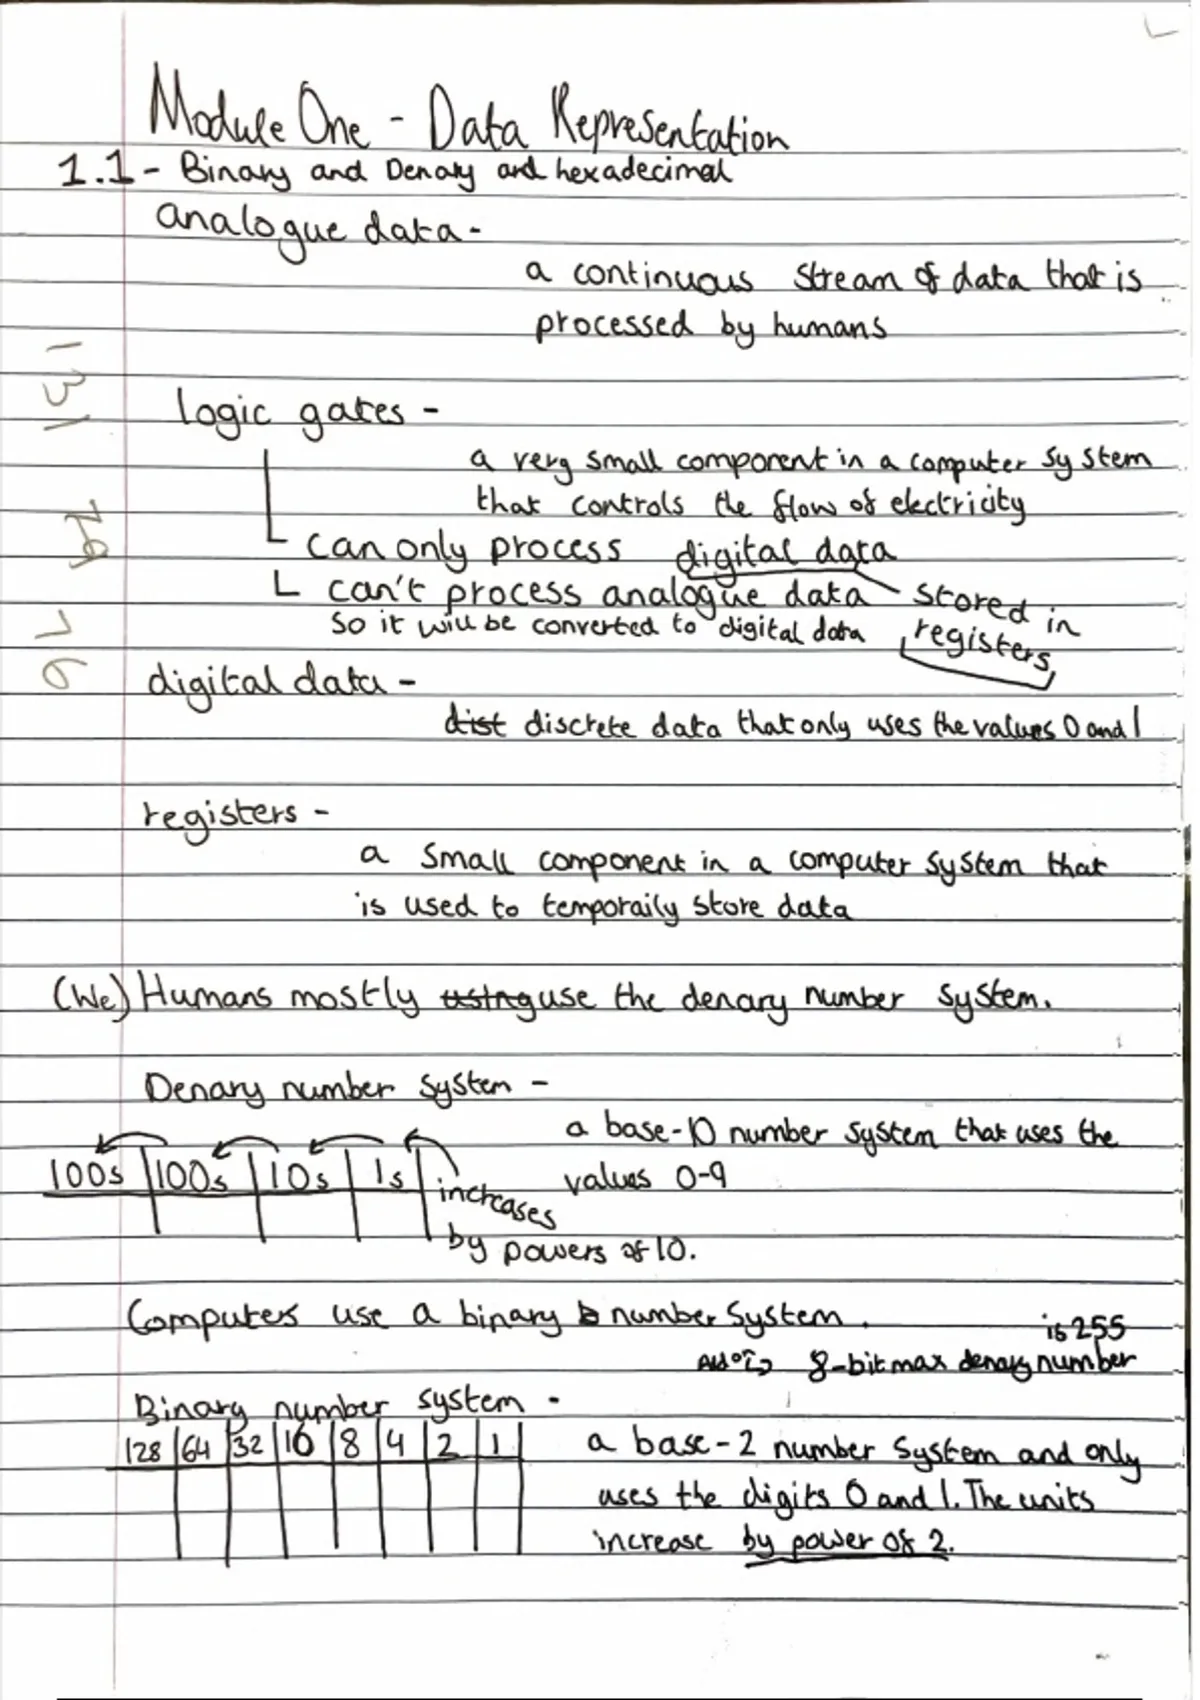 Module One - Data Representation
1.1 - Binary and Denary and hexadecimal
analogue data -
a continuous stream of data that is
processed by humans
logic gates -
a very small component in a computer system
that controls the flow of electricity
can only process digital data
can't process analogue data stored in
so it will be converted to digital data registers
digital data -
dist discrete data that only uses the values 0 and 1
registers -
a small component in a computer system that
is used to temporaily store data
(We) Humans mostly using use the denary number system.
Denary number system -
a base-10 number system that uses the
100s 100s 10s 1s values 0-9
increases
by powers of 10.
Computers use a binary b number system.
is 255
8-bit max denary number
Binary number system -
128 64 32 16 8 4 2 1 a base-2 number system and only
uses the digits 0 and 1. The units
increase by power of 2.